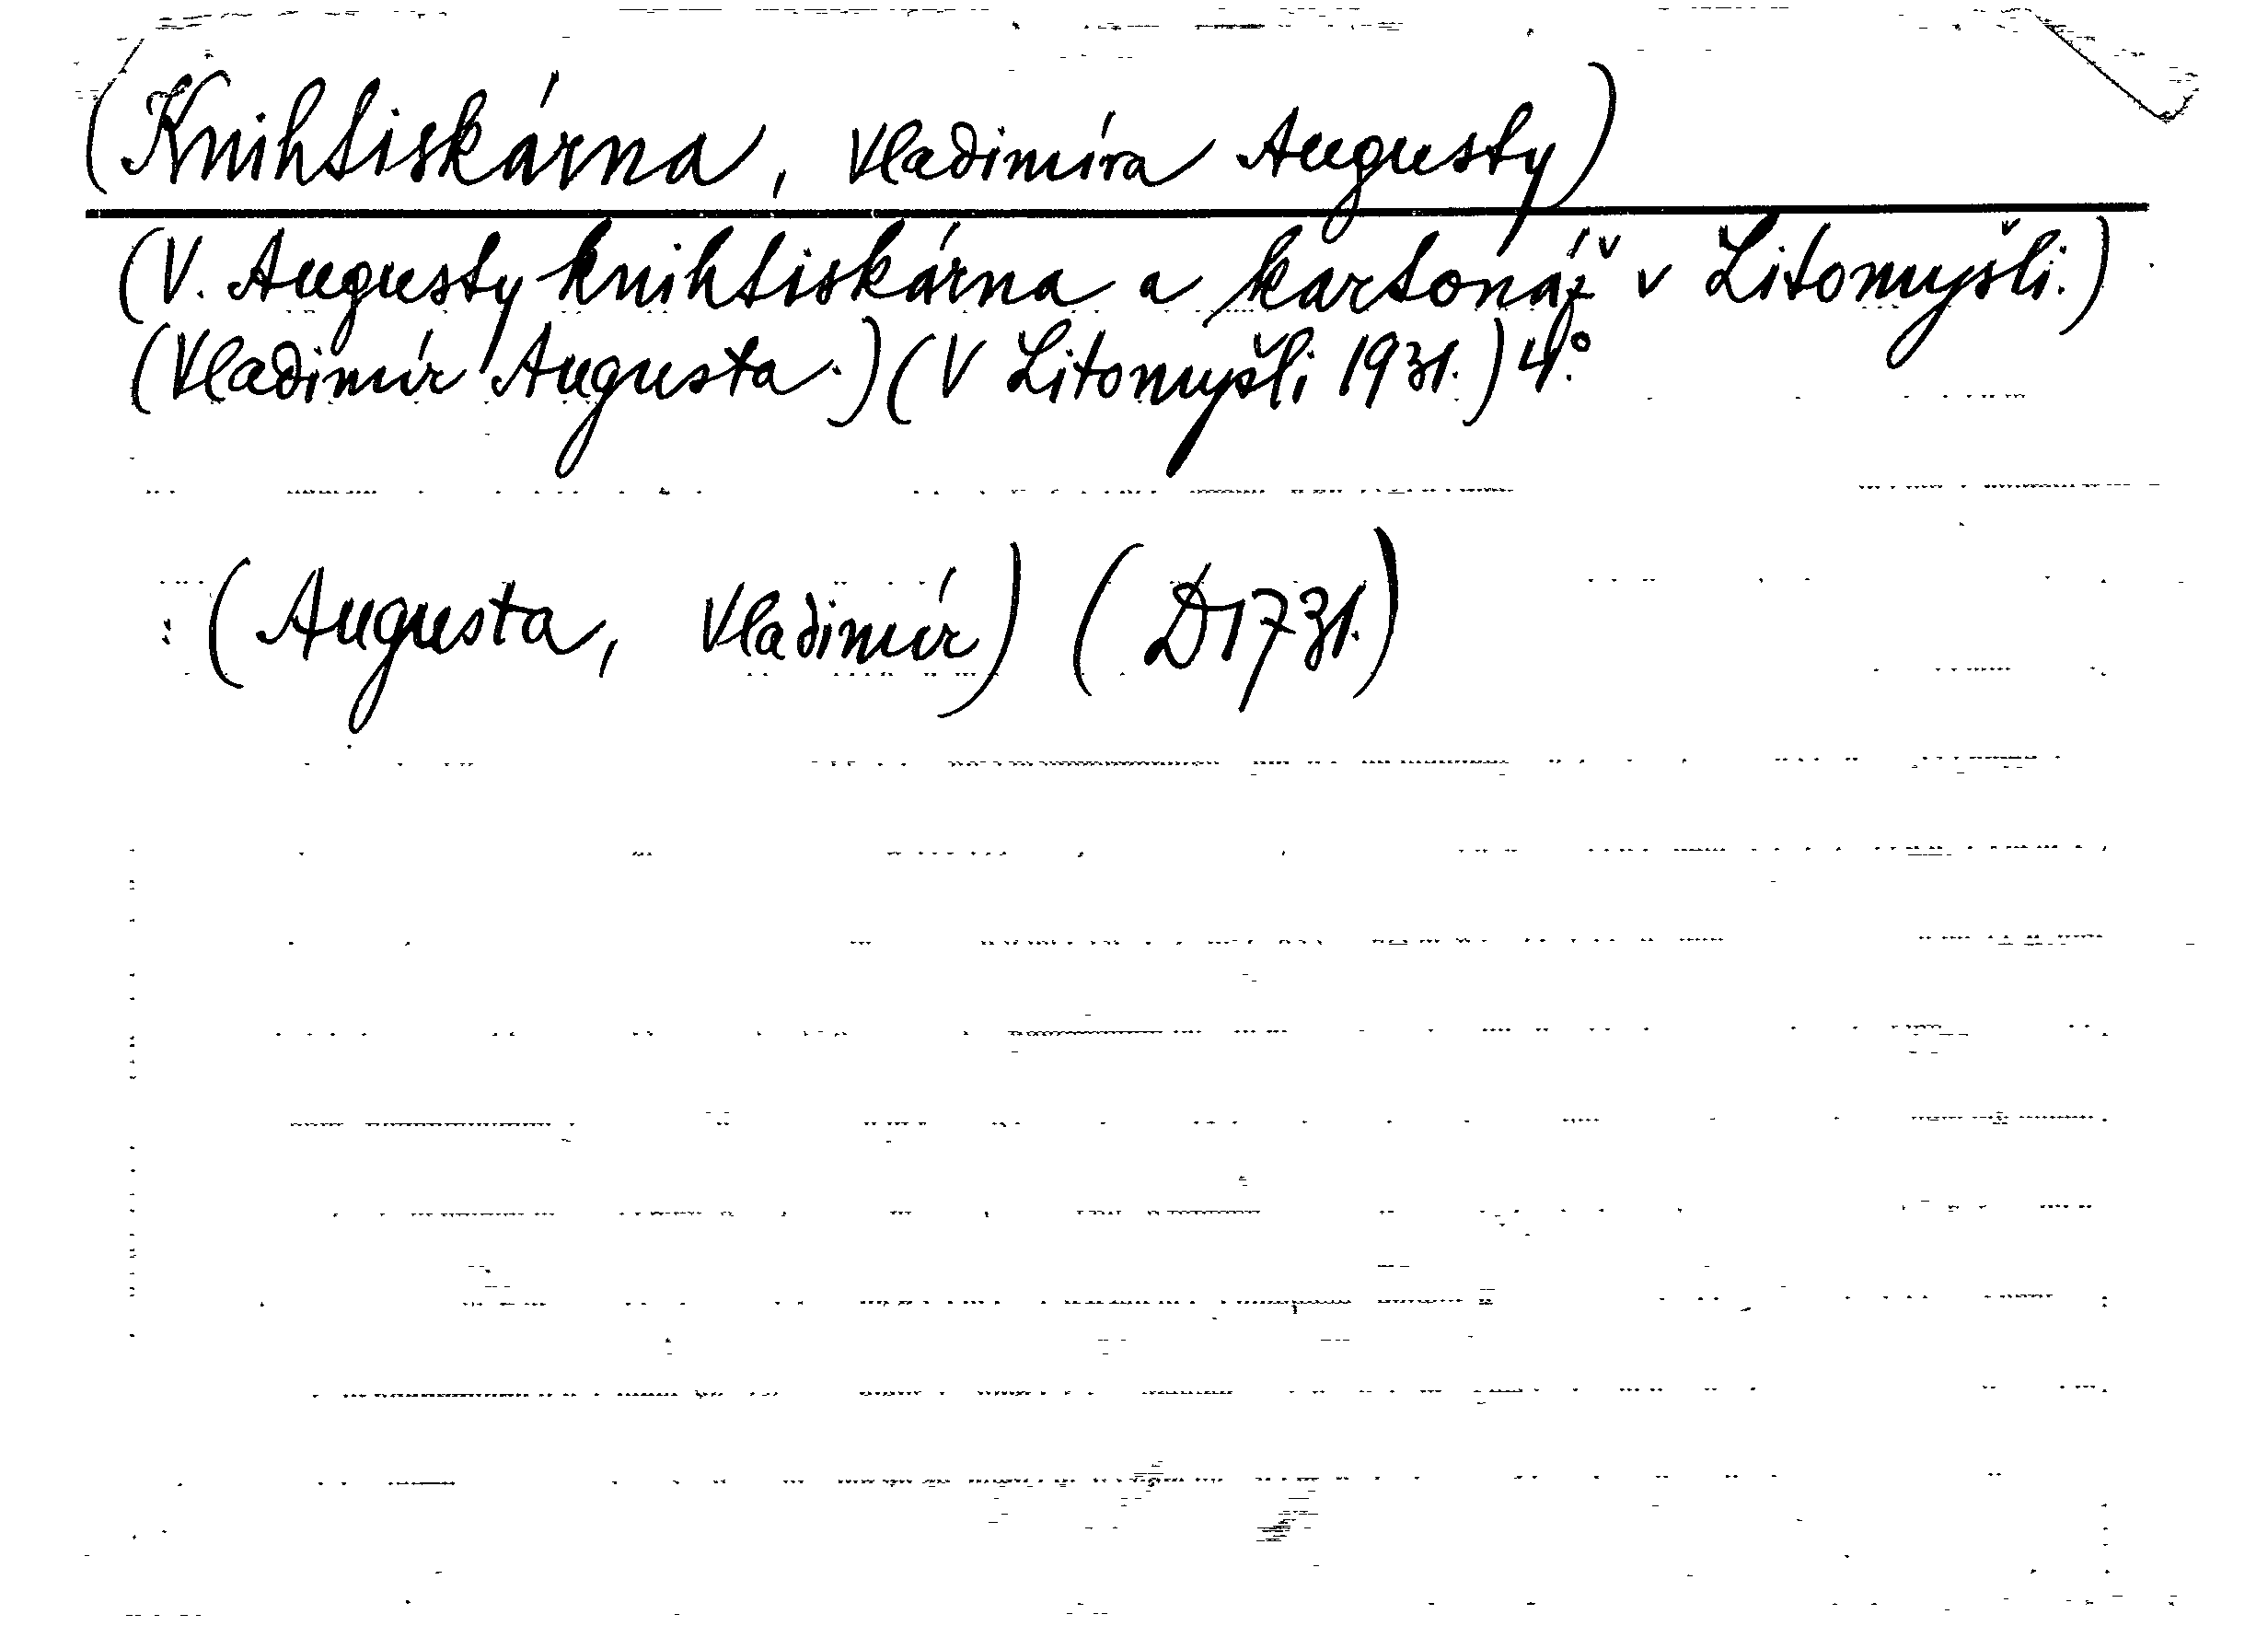 (Knihtiskárna, Vladimíra Augusty)
(V. Augusty knihtiskárna a kartonáž v Litomyšli.)
(Vladimír Augusta.) (V Litomyšli 1931.) 4.°
: (Augusta, Vladimír) (D1731.)